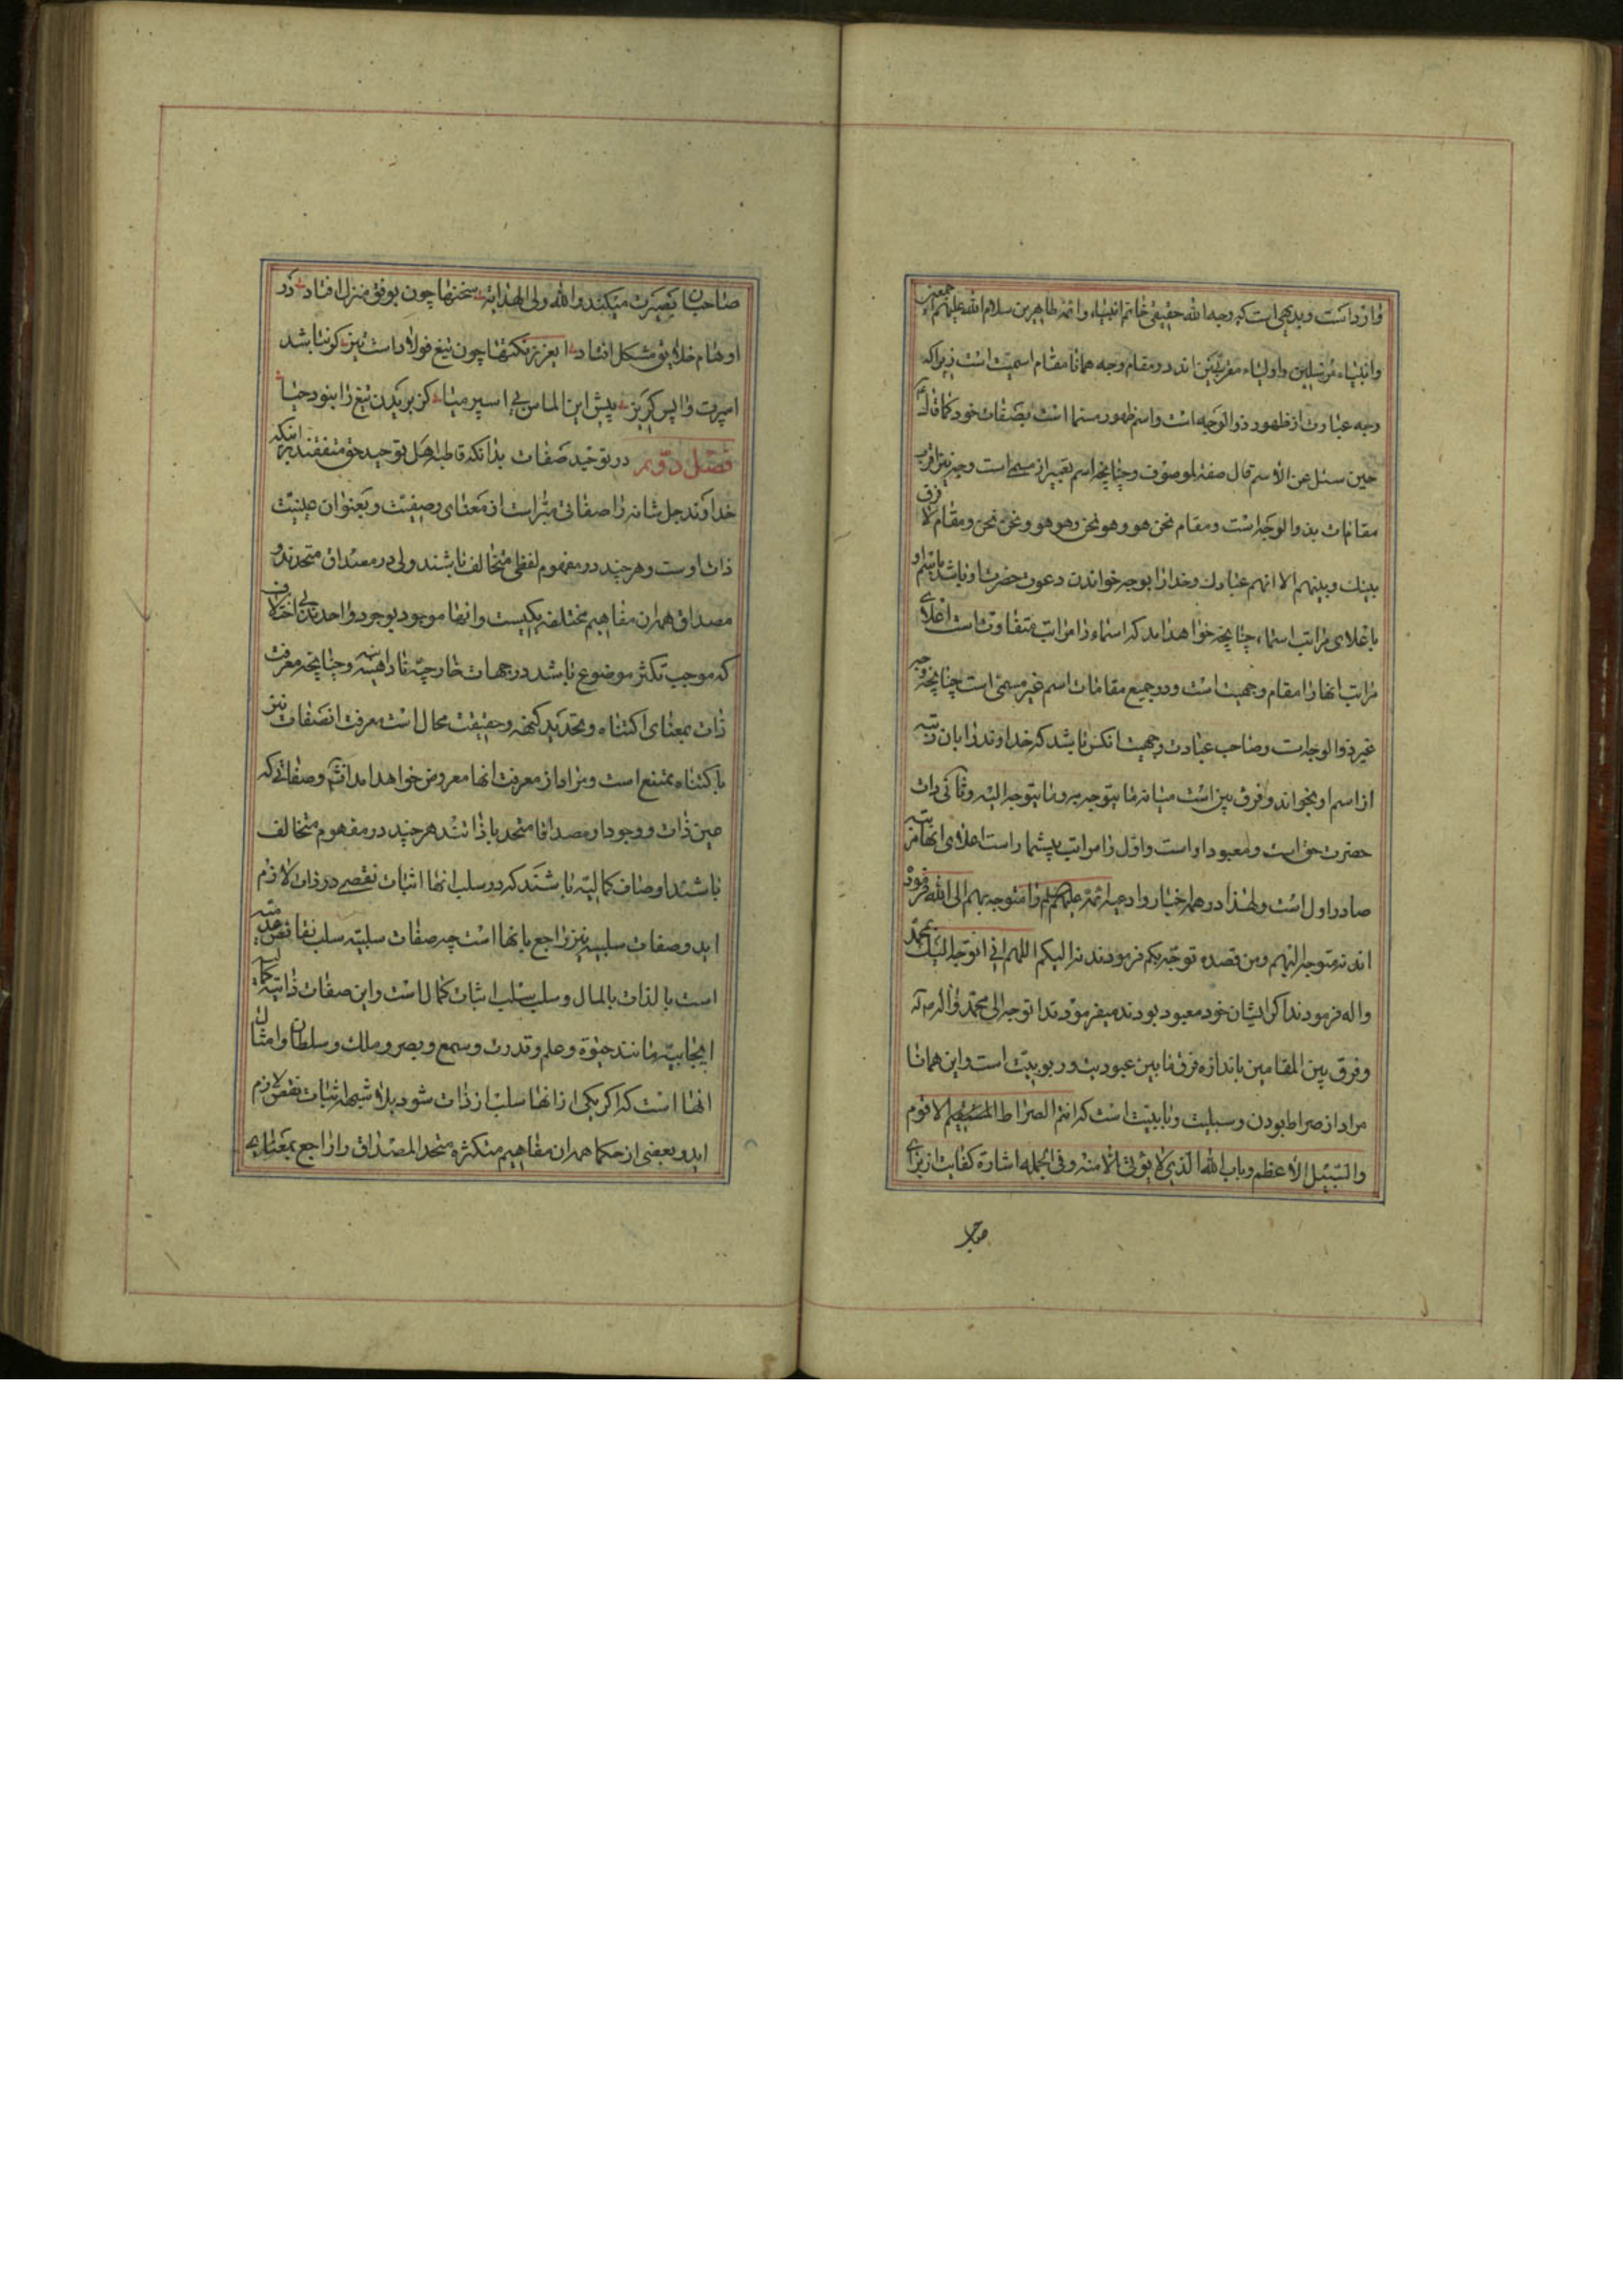 وارد است و بدیهی است که وجه الله حقیقی خاتم انبیاء و ائمه طاهرین سلام الله علیهم اجمعین
و انبیاء مرسلین و اولیاء مقربین اند در مقام وجه همانا مقام اسمیت است زیرا که
وجه عبارت از ظهور ذو الوجه است و اسم ظهور مسما است بصفات خود کما قال
حین سئل عن الاسم قال صفة لموصوف و چنانچه اسم تعبیر از مسمی است وجه نیز اقرب
مقامات بذو الوجه است و مقام نحن هو و هو نحن و هو هو و نحن نحن و مقام لا فرق
بینك و بینهم الا انهم عبادك و خدا را بوجه خواندن دعوت حضرت او باشد باسم او
با علای مراتب اسماء چنانچه خواهد امد که اسماء را مراتب متفاوت است اعلای
مراتب انها را مقام وجهیت است و در جمیع مقامات اسم غیر مسمی است چنانچه وجه
غیر ذو الوجه است و صاحب عبادت وجهیت انکس باشد که خداوند را بان رتبه
از اسم او بخواند و فرق بین است میانه ما یتوجه به و ما یتوجه الیه و ثانی ذات
حضرت حق است و معبود او است و اول را مراتب بیشمار است اعلای انها مرتبه
صادر اول است و لهذا در همه اخبار و ادعیه ائمه علیهم السلام را متوجه بهم الی الله فرموده
اند نه متوجه الیهم و من قصده توجه بکم فرمودند نه الیکم اللهم انی اتوجه الیك بمحمد
و اله فرمودند اکر ایشان خود معبود بودند میفرمودند اتوجه الی محمد و اله نه به
و فرق بین المقامین باندازه فرق مابین عبودیت و ربوبیت است و این همانا
مراد از صراط بودن و سبیلیت و بابیت است که انتم الصراط المستقیم الاقوم
و السبیل الاعظم و باب الله الذی لا یؤتی الا منه و فی الجمله اشاره کفایت از برای
صاحبان
صاحبان بصیرت میکند و الله ولی الهدایة سخنها چون بوفق منزل افتاد در
اوهام خلایق مشکل افتاد ایعزیز نکتها چون تیغ فولاد است تیز کر نباشد
اسپرت واپس کریز پیش این الماس بی اسپر میا کز بریدن تیغ را نبود حیا
فصل دوم در توحید صفات بدانکه قاطبه اهل توحید حق متفقند بر اینکه
خداوند جل شانه را صفاتی مبراست از معنای وصفیت و بعنوان عینیت
ذات اوست و هر چند در مفهوم لفظی متخالف باشند ولی در مصداق متحدند و
مصداق همه ان مفاهیم مختلفه یکیست و انها موجود بوجود واحدند بی اختلاف
که موجب تکثر موضوع باشد در جهات خارجیه و اذهنیه و چنانچه معرفت
ذات بمعنای اکتناه و تحدید کنه و حقیقت محال است معرفت انصفات نیز
با کتناه ممتنع است و مراد از معرفت انها معروض خواهد امد انشا و صفاتی که
عین ذات و وجودا و مصداقا متحد با ذاتند هر چند در مفهوم متخالف
باشند اوصاف کمالیه باشند که در سلب انها اثبات نقصی در ذات لازم
اید و صفات سلبیه نیز راجع بانها است چه صفات سلبیه سلب نقائص
است بالذات بالمال و سلب سلب اثبات کمال است و این صفات ذاتیه
ایجابیه مانند حیوة و علم و قدرت و سمع و بصر و ملك و سلطان و امثال
انها است که اکر یکی از انها سلب از ذات شود بلا شبهه اثبات نقص لازم
اید و بعضی از حکما همه ان مفاهیم متکثره متحد المصداق را راجع بمعنای